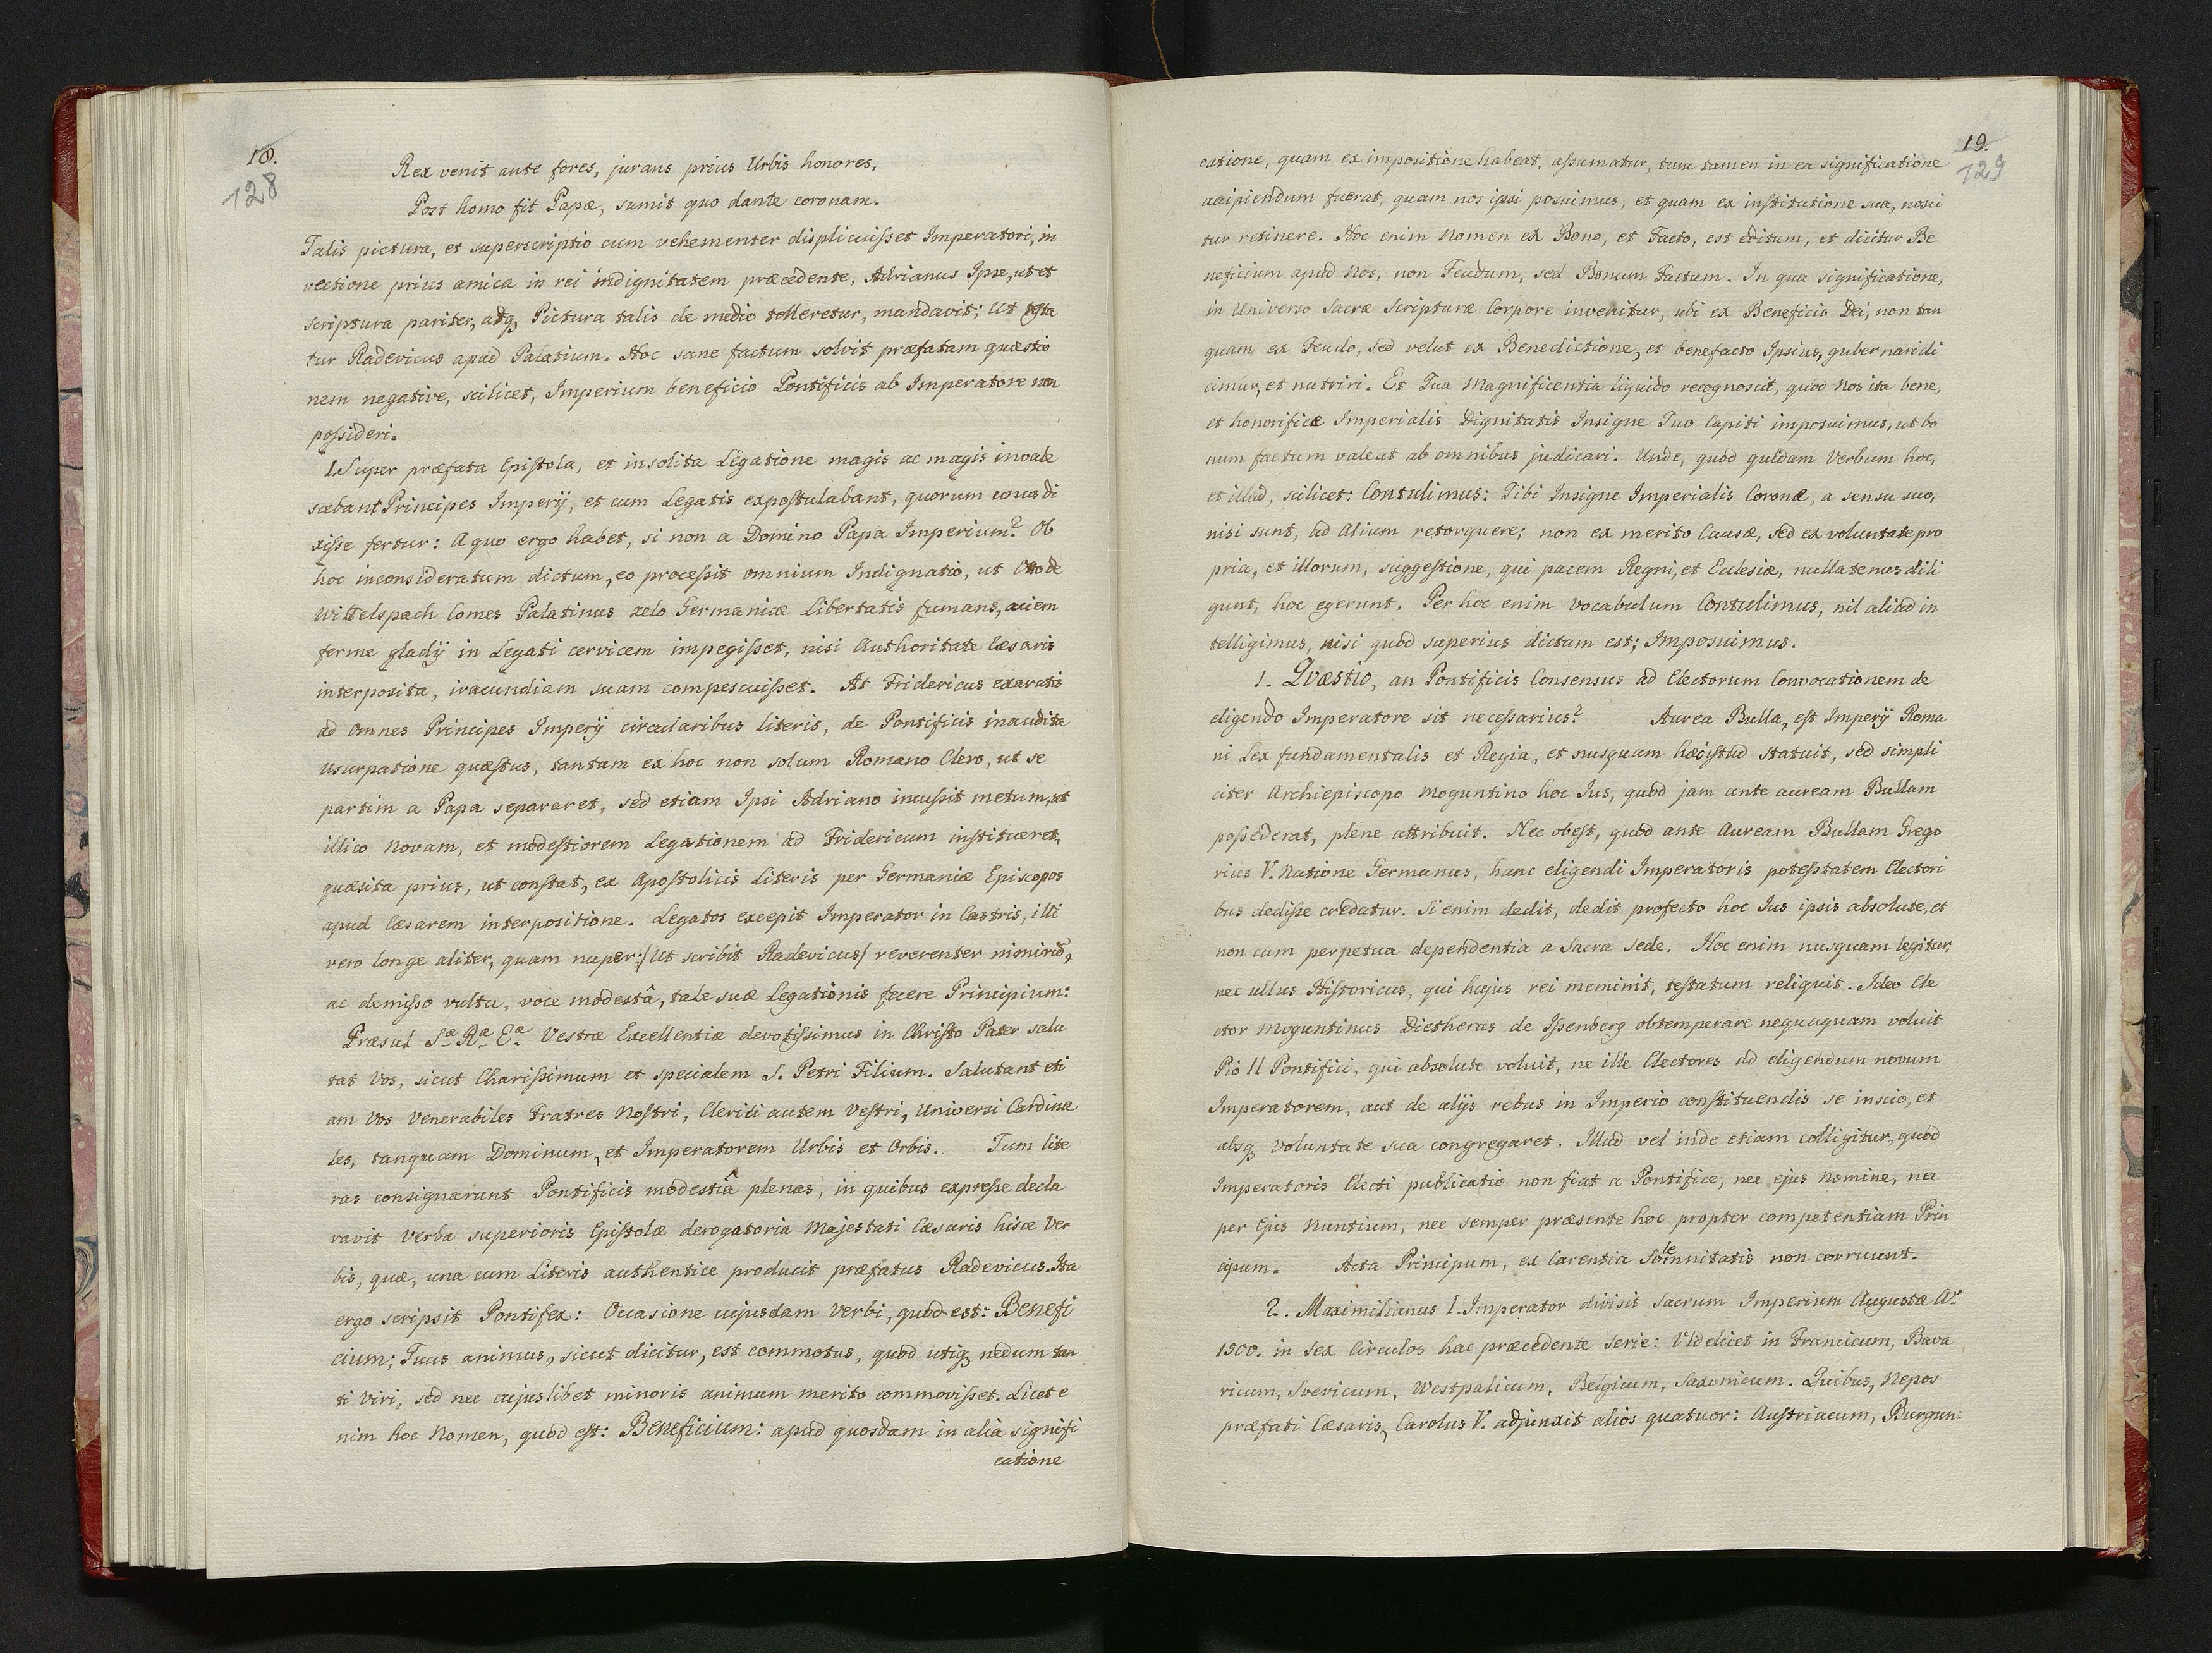 18.
128
Rex venit ante fores, jurans prius Urbis honores,
Post homo fit Papæ, sumit quo dante coronam.
Talis pictura, et superscriptio cum vehementer displicuisset Imperatori, in
vectione prius amica in rei indignitatem præcedente, Adrianus Ipse, ut et
scriptura pariter, atq₃ Pictura talis de medio tolleretur, mandavit; Ut testa
tur Radevicus apud Palatium. Hoc sane factum solvit præfatam quæstio
nem negative, scilicet, Imperium beneficio Pontificis ab Imperatore non
possideri.
1. Super præfata Epistola, et insolita Legatione magis ac magis invale
scebant Principes Imperij, et cum Legatis expostulabant, quorum unus di
xisse fertur: A quo ergo habet, si non a Domino Papa Imperium? Ob
hoc inconsideratum dictum, eo processit omnium Indignatio, ut Otto de
Wittelspach Comes Palatinus zelo Germanicæ Libertatis fumans, aciem
ferme gladij in Legati cervicem impegisset, nisi Authoritate Cæsaris
interposita, iracundiam suam compescuisset. At Fridericus exaratis
ad omnes Principes Imperij circularibus literis, de Pontificis inaudita
usurpatione quæstus, tantum ex hoc non solum Romano Clero, ut se
partim a Papa separaret, sed etiam Ipsi Adriano incussit metum, ut
illico novam, et modestiorem Legationem ad Fridericum institueret,
quæsita prius, ut constat, ex Apostolicis Literis per Germaniæ Episcopos
apud Cæsarem interpositione. Legatos excepit Imperator in Castris, illi
vero longe aliter, quam nuper:/ Ut scribit Radevicus/ reverenter nimirũ,
ac demisso vultu, voce modestâ, tale suæ Legationis fecere Principium:
Præsul Sæ Ræ Eæ Vestræ Excellentiæ devotissimus in Christo Pater salu
tat Vos, sicut Charissimum et specialem S. Petri Filium. Salutant eti
am Vos Venerabiles Fratres Nostri, Clerici autem Vestri, Universi Cardina
les, tanquam Dominum, et Imperatorem Urbis et Orbis. Tum lite
ras consignarunt Pontificis modestiâ plenas, in quibus expresse decla
ravit verba superioris Epistolæ derogatoria Majestati Cæsaris hisce Ver
bis, quæ, una cum Literis authentice producit præfatus Radevicus. Ita
ergo scripsit Pontifex: Occasione cujusdam Verbi, quod est: Benefi
cium; Tuus animus, sicut dicitur, est commotus, quod utiq₃ nedum tan
ti Viri, sed nec cujuslibet minoris animum merito commovisset. Licet e
nim hoc Nomen, quod est: Beneficium: apud quosdam in alia signifi
catione
19.
129
catione, quam ex impositione habeat, assumatur, tunc tamen in ea significatione
accipiendum fuerat, quam nos ipsi posuimus, et quam ex institutione sua, nosci
tur retinere. Hoc enim Nomen ex Bono, et Facto, est editum, et dicitur Be
neficium apud Nos, non Feudum, sed Bonum Factum. In qua significatione,
in Universo Sacræ Scripturæ Corpore invenitur, ubi ex Beneficio Dei, non tan
quam ex Feudo, sed velut ex Benedictione, et benefacto Ipsius, gubernari di
cimur, et nutriri. Et Tua Magnificentia liquido recognoscit, quod Nos ita bene,
et honorifice Imperialis Dignitatis Insigne Tuo Capiti imposuimus, ut bo
num factum valeat ab omnibus judicari. Unde, quod quidam Verbum hoc,
et illud, scilicet: Contulimus: Tibi Insigne Imperialis Coronæ, a sensu suo,
nisi sunt, ad Alium retorquere; non ex merito Causæ, sed ex voluntate pro
pria, et illorum, suggestione, qui pacem Regni, et Ecclesiæ, nullatenus dili
gunt, hoc egerunt. Per hoc enim Vocabulum Contulimus, nil aliud in
telligimus, nisi quod superius dictum est; Imposuimus.
1. Quæstio, an Pontificis Consensus ad Electorum Convocationem de
eligendo Imperatore sit necessarius? Aurea Bulla, est Imperij Roma
ni Lex fundamentalis et Regia, et nusquam hoc istud statuit, sed simpli
citer Archiepiscopo Moguntino hoc Jus, quod jam ante auream Bullam
possederat, plene attribuit. Nec obest, quod ante Auream Bullam Grego
rius V. Natione Germanus, hanc eligendi Imperatoris potestatem Electori
bus dedisse credatur. Si enim dedit, dedit profecto hoc Jus ipsis absolute, et
non cum perpetua dependentia a Sacra Sede. Hoc enim nusquam legitur,
nec ullus Historicus, qui hujus rei meminit, testatum reliquit. Ideo Ele
ctor Moguntinus Dietherus de Isenberg obtemperare nequaquam voluit
Pio II Pontifici, qui absolute voluit, ne ille Electores ad eligendum novum
Imperatorem, aut de alijs rebus in Imperio constituendis se inscio, et
absq₃ voluntate sua congregaret. Illud vel inde etiam colligitur, quod
Imperatoris Electi publicatio non fiat a Pontifice, nec ejus Nomine, nec
per Ejus Nuntium, nec semper præsente hoc propter competentiam Prin
cipum. Acta Principum, ex Carentia Solemnitatis non corruunt.
2. Maximilianus I. Imperator divisit Sacrum Imperium Augustæ Aº
1500. in Sex Circulos hac præcedente serie: Videlicet in Franci­cum, Bava
ricum, Svevicum, Westpalicum, Belgicum, Saxonicum. Quibus, Nepos
præfati Cæsaris, Carolus V. adjunxit alios quatuor: Austriacum, Burgun: